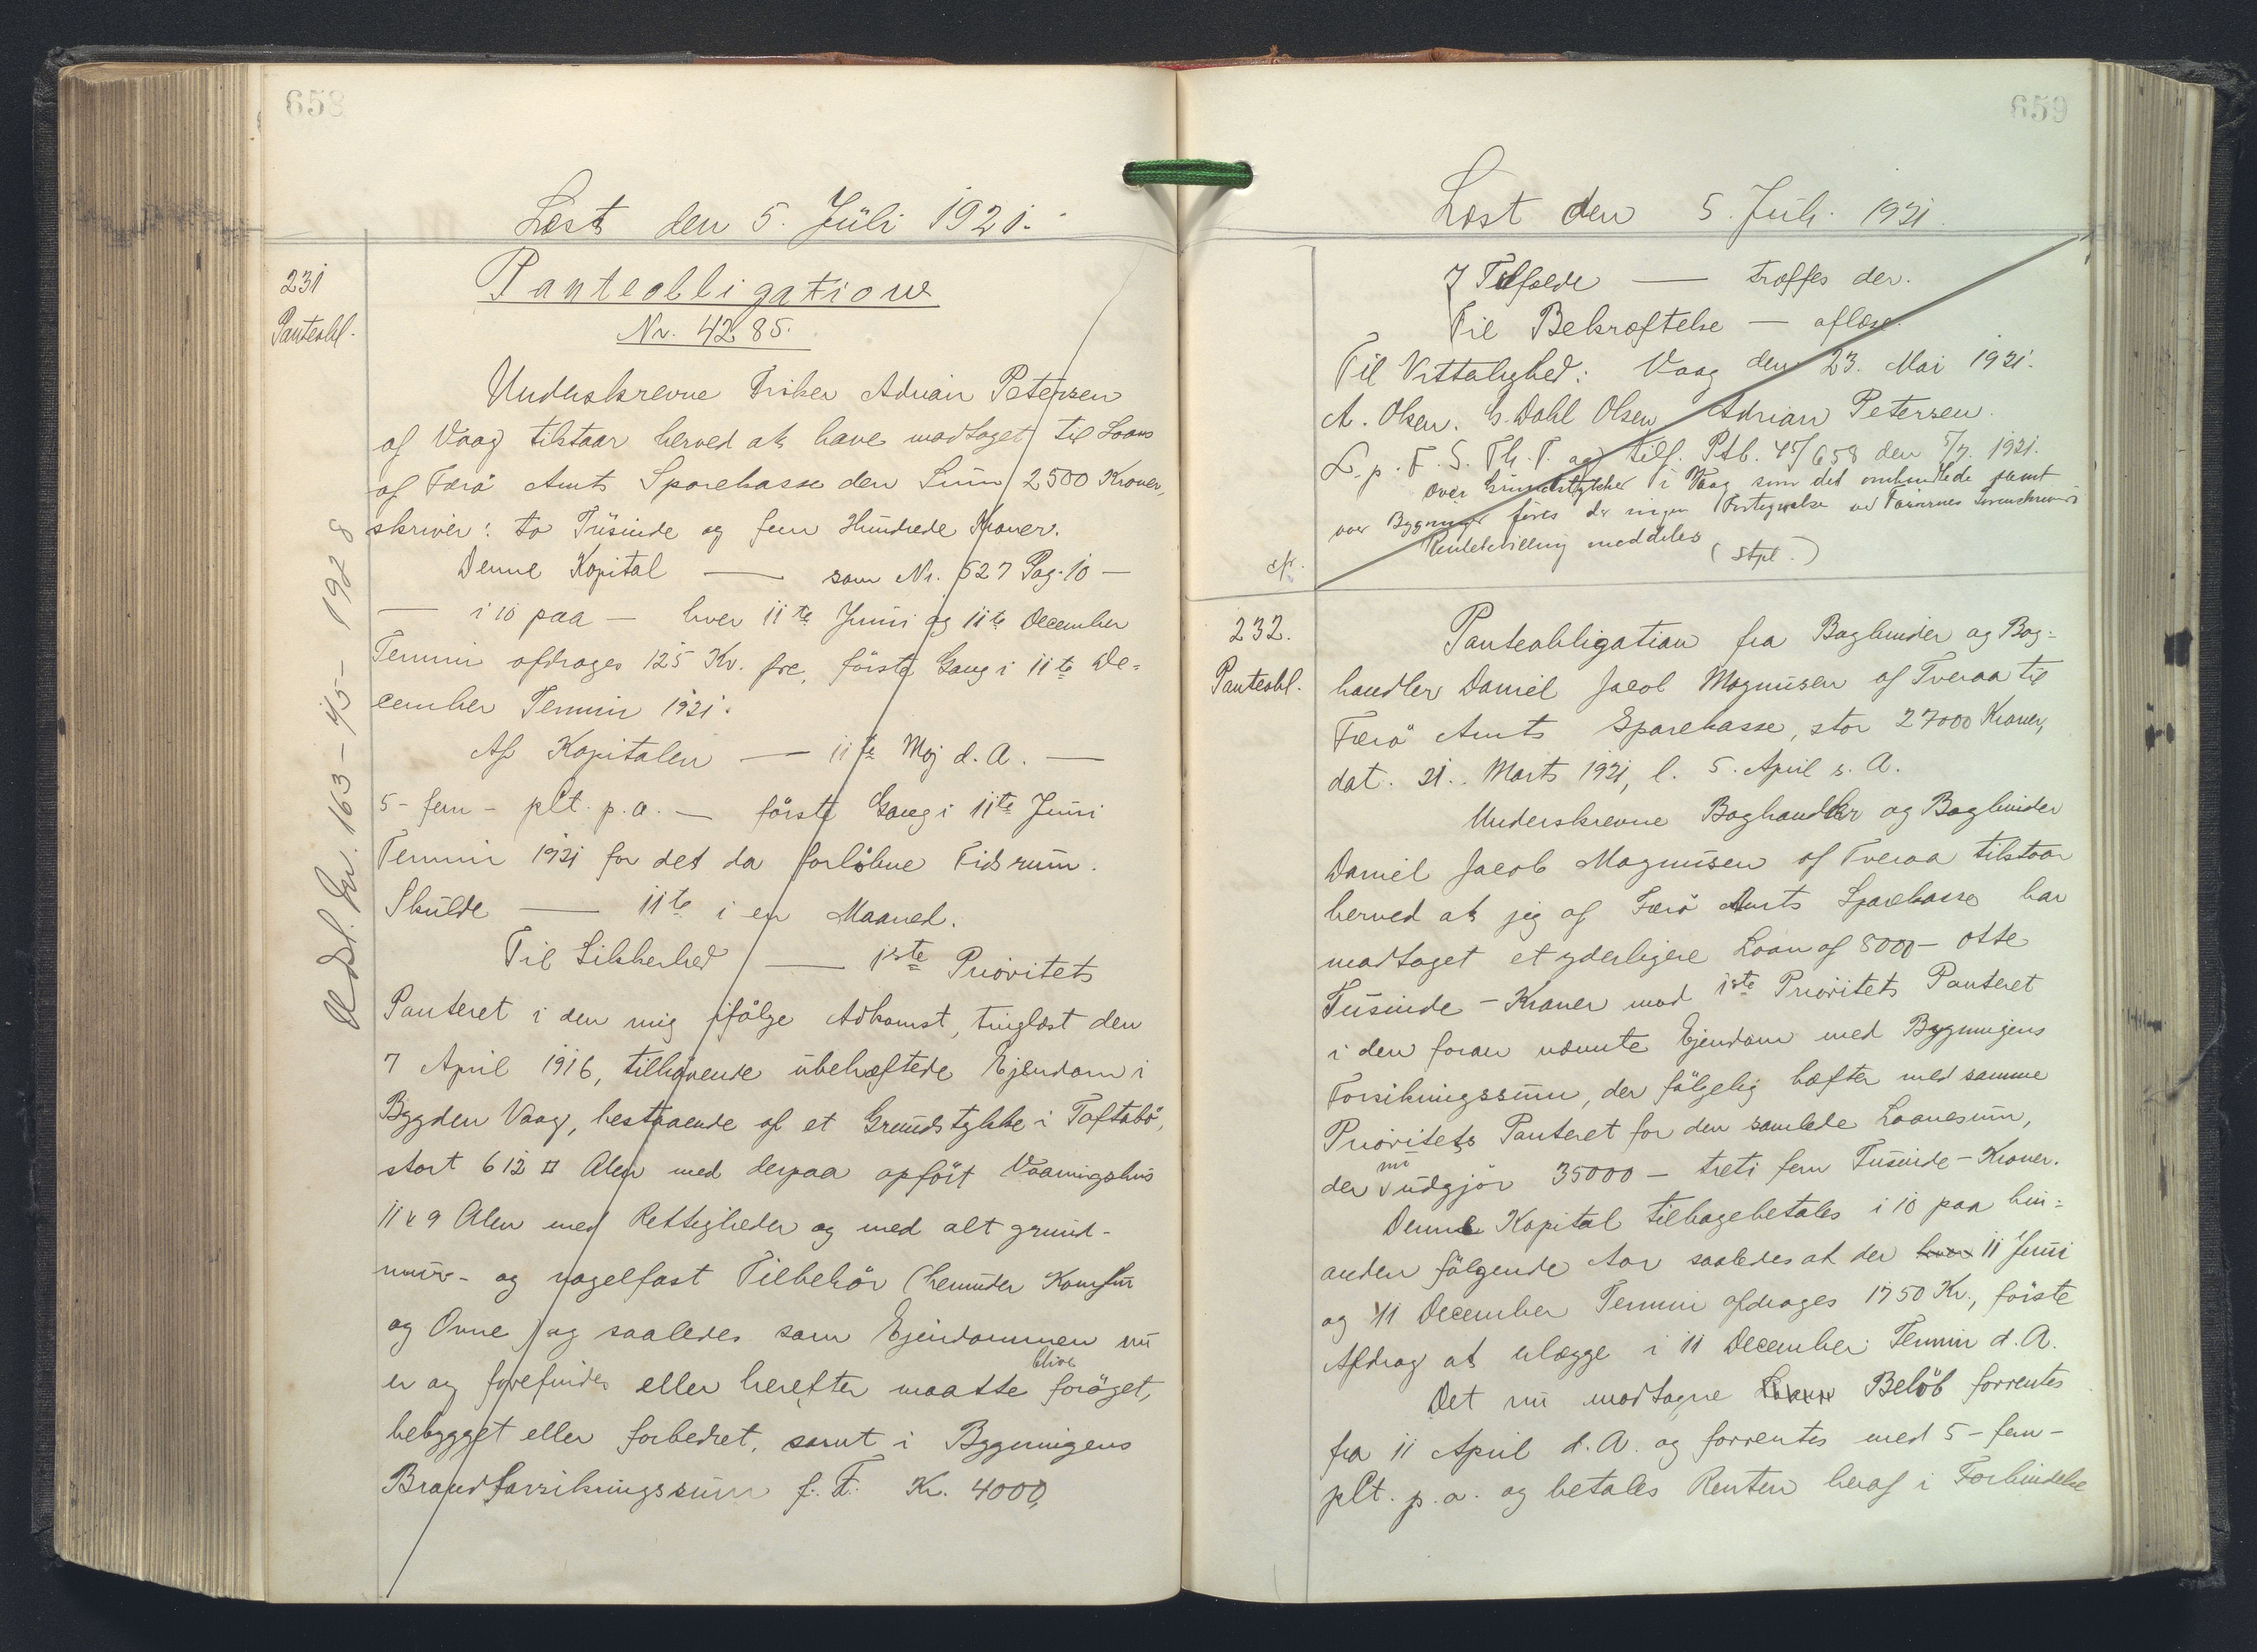 658
Læst den 5. Juli 1921.
231
Panteobl.
Panteobligation
Nr. 4285.
Underskrevne Fisker Adrian Petersen
af Vaag tilstaar herved at have modtaget til Laans
af Færø Amts Sparekasse den Sum 2500 Kroner,
skriver: to Tusinde og fem Hundrede Kroner.
Denne Kapital — som Nr. 527 Pag. 10 —
— i 10 paa — hver 11te Juni og 11te December
Termin afdrages 125 Kr. første Gang i 11te De-
cember Termin 1921.
Af Kapitalen — 11te Maj d. A. —
5 - fem - pCt. p. a. — første Gang i 11te Juni
Termin 1921 for det da forløbne Tidsrum.
Skulde — 11te i en Maaned.
Til Sikkerhed — 1ste Prioritets
Panteret i den mig ifølge Adkomst, tinglæst den
7 April 1916, tilhørende ubehæftede Ejendom i
Bygden Vaag, bestaaende af et Grundstykke i Toftabø,
stort 612 □ Alen med derpaa opført Vaaningshus
11 x 9 Alen med Rettigheder og med alt grund-
mur- og nagelfast Tilbehør (herunder Komfur
og Ovne) og saaledes som Ejendommen nu
er og forefindes eller herefter maatte blive forøget,
bebygget eller forbedret, samt i Bygningens
Brandforsikringssum f. T. Kr. 4000,
163 - 45 - 1928
659
Læst den 5. Juli 1921.
I Tilfælde — træffes der.
Til Bekræftelse — aflæse.
Til Vitterlighed: Vaag den 23. Mai 1921.
A. Olsen. G. Dahl Olsen Adrian Petersen.
L. p. F. S. Th. T. og tilf. Ptb. 45/658 den 5/7. 1921.
Over Grundstykker i Vaag som det omhandlede samt
over Bygninger føres der ingen Fortegnelse ved Færøernes Sorenskriveri
meddeles (Stpl.)
cfr.
232.
Panteobl.
Panteobligation fra Bogbinder og Bog-
handler Daniel Jacob Magnusen af Tveraa til
Færø Amts Sparekasse, stor 27000 Kroner,
dat. 21. Marts 1921, l. 5. April s. A.
Underskrevne Boghandler og Bogbinder
Daniel Jacob Magnusen af Tveraa tilstaar
herved at jeg af Færø Amts Sparekasse har
modtaget et yderligere Laan af 8000 - otte
Tusinde - Kroner mod 1ste Prioritets Panteret
i den foran nævnte Ejendom med Bygningens
Forsikringssum, der følgelig hæfter med samme
Prioritets Panteret for den samlede Laanesum,
der nu udgjør 35000 - treti fem Tusinde - Kroner.
Denne Kapital tilbagebetales i 10 paa hin-
anden følgende Aar saaledes at der hver 11 Juni
og 11 December Termin afdrages 1750 Kr., første
Afdrag at erlægge i 11 December Termin d. A.
Det nu modtagne Laan Beløb forrentes
fra 11 April d. A. og forrentes med 5 - fem -
pCt. p. a. og betales Renten heraf i Forbindelse